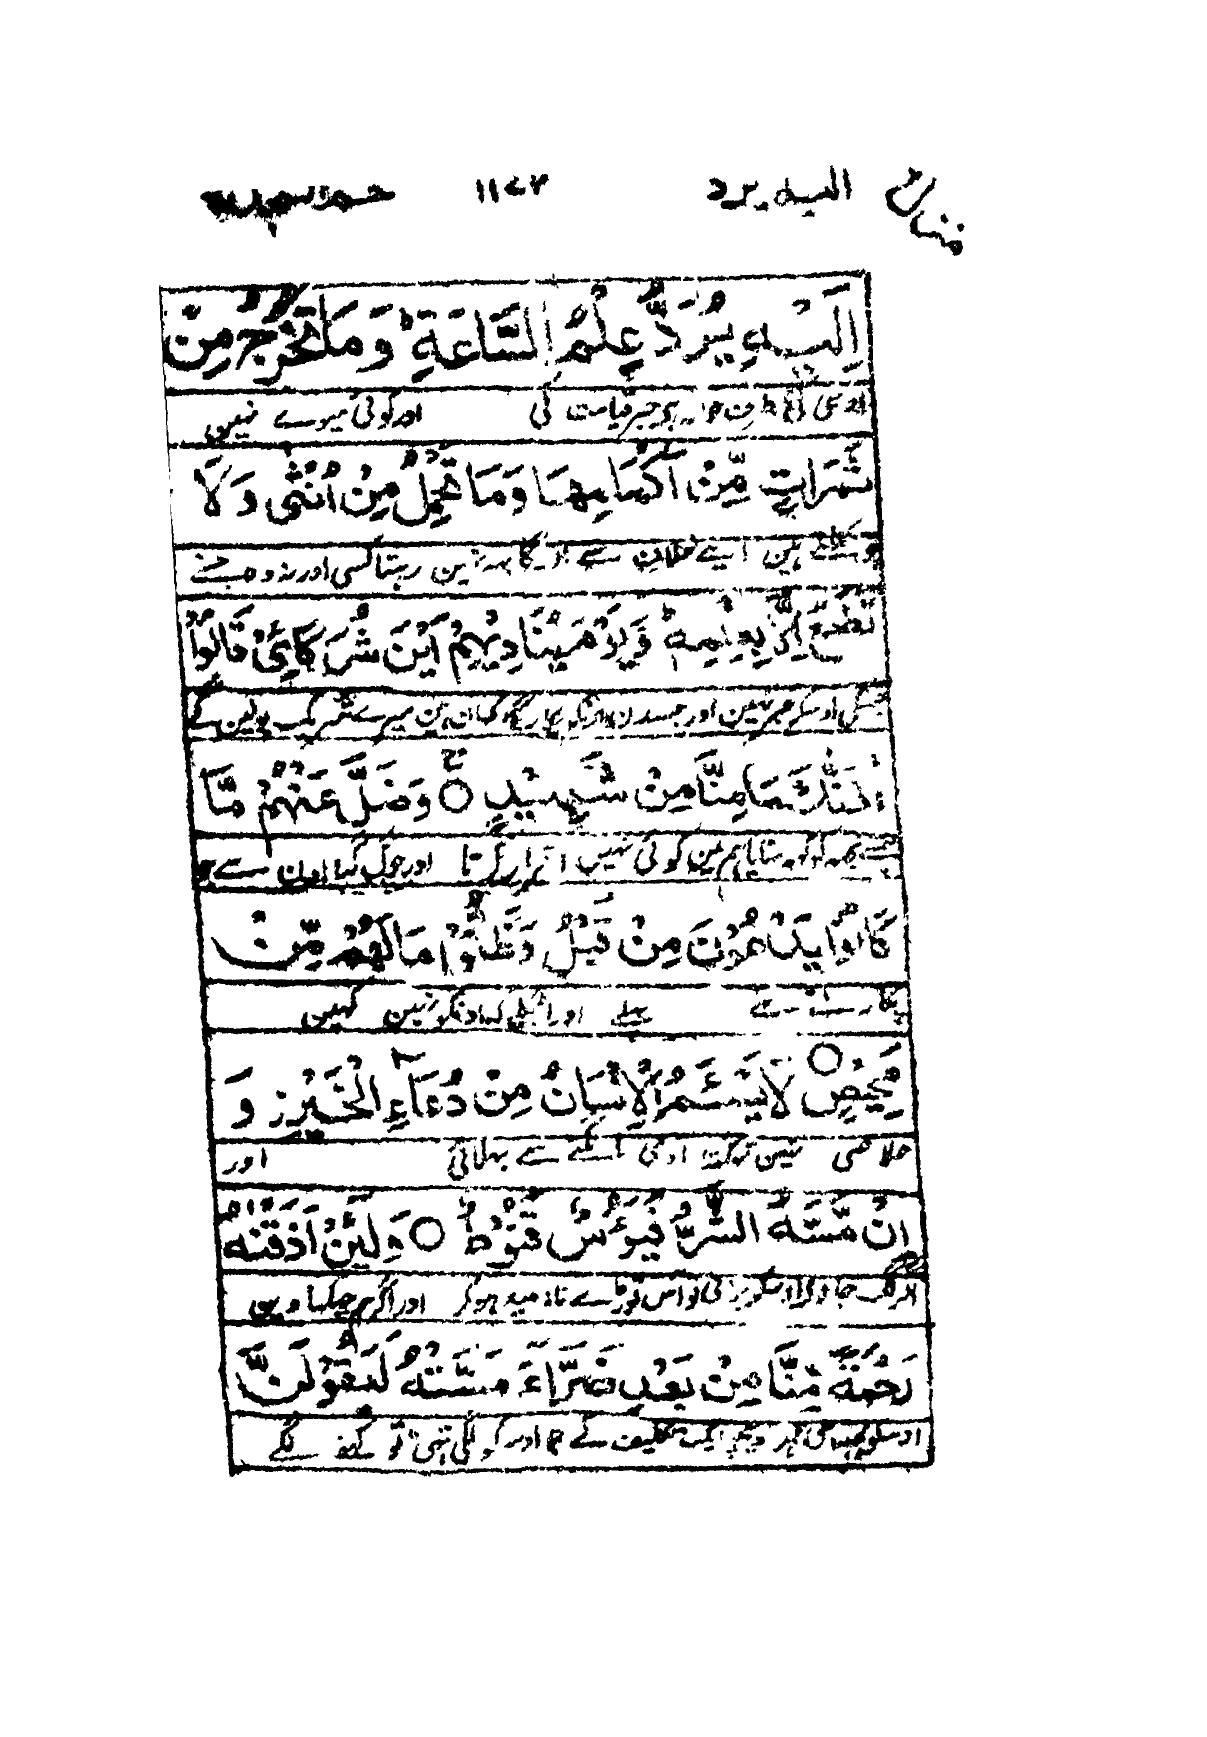 الیه یرد ۱۱۷۳ حم السجدة
اِلَيْهِ يُرَدُّ عِلْمُ السَّاعَةِ ؕ وَمَا تَخْرُجُ مِنْ
اوسی کی طرف حوالہ ہی خبر قیامت کی اور کوئی میوے نہیں
ثَمَرَاتٍ مِّنْ اَكْمَامِهَا وَمَا تَحْمِلُ مِنْ اُنْثٰى وَلَا
نکلتے ہین اپنے غلاف سے اور گابہہ نہین رہتا کسی اور نہ وہ جنے
تَضَعُ اِلَّا بِعِلْمِهٖ ؕ وَيَوْمَ يُنَادِيْهِمْ اَيْنَ شُرَكَآئِيْ قَالُوْا
اوسکی خبر نہین اور جسدن اونکو پکاریگا کہان ہین میرے شریک بولین گے
اٰذَنّٰكَ مَا مِنَّا مِنْ شَهِيْدٍ ○ وَضَلَّ عَنْهُمْ مَّا
ہمنے تجهہ کو کہہ سنایا ہم مین کوئی نہیں اقرار کرتا اور چوک گیا اون سے جو
كَانُوْا يَدْعُوْنَ مِنْ قَبْلُ وَظَنُّوْا مَا لَهُمْ مِّنْ
پکارتے تهے پہلے اور اٹکلے کہ اونکو نہین کہیں
مَّحِيْصٍ ○ لَا يَسْئَمُ الْاِنْسَانُ مِنْ دُعَآءِ الْخَيْرِ ز وَ
خلاصی نہین تهکتا آدمی مانگنے سے بہلائی اور
اِنْ مَّسَّهُ الشَّرُّ فَيَئُوْسٌ قَنُوْطٌ ○ وَلَئِنْ اَذَقْنٰهُ
اگر لگ جاوے اوسکو برائی تو آس توڑے نا امید ہو کر اور اگر ہم چکہاوین
رَحْمَةً مِّنَّا مِنْ بَعْدِ ضَرَّآءَ مَسَّتْهُ لَيَقُوْلَنَّ
اوسکو کچهہ اپنی مہر پیچهے ایک تکلیف کے جو اوسکو لگی تہی تو کہنے لگے